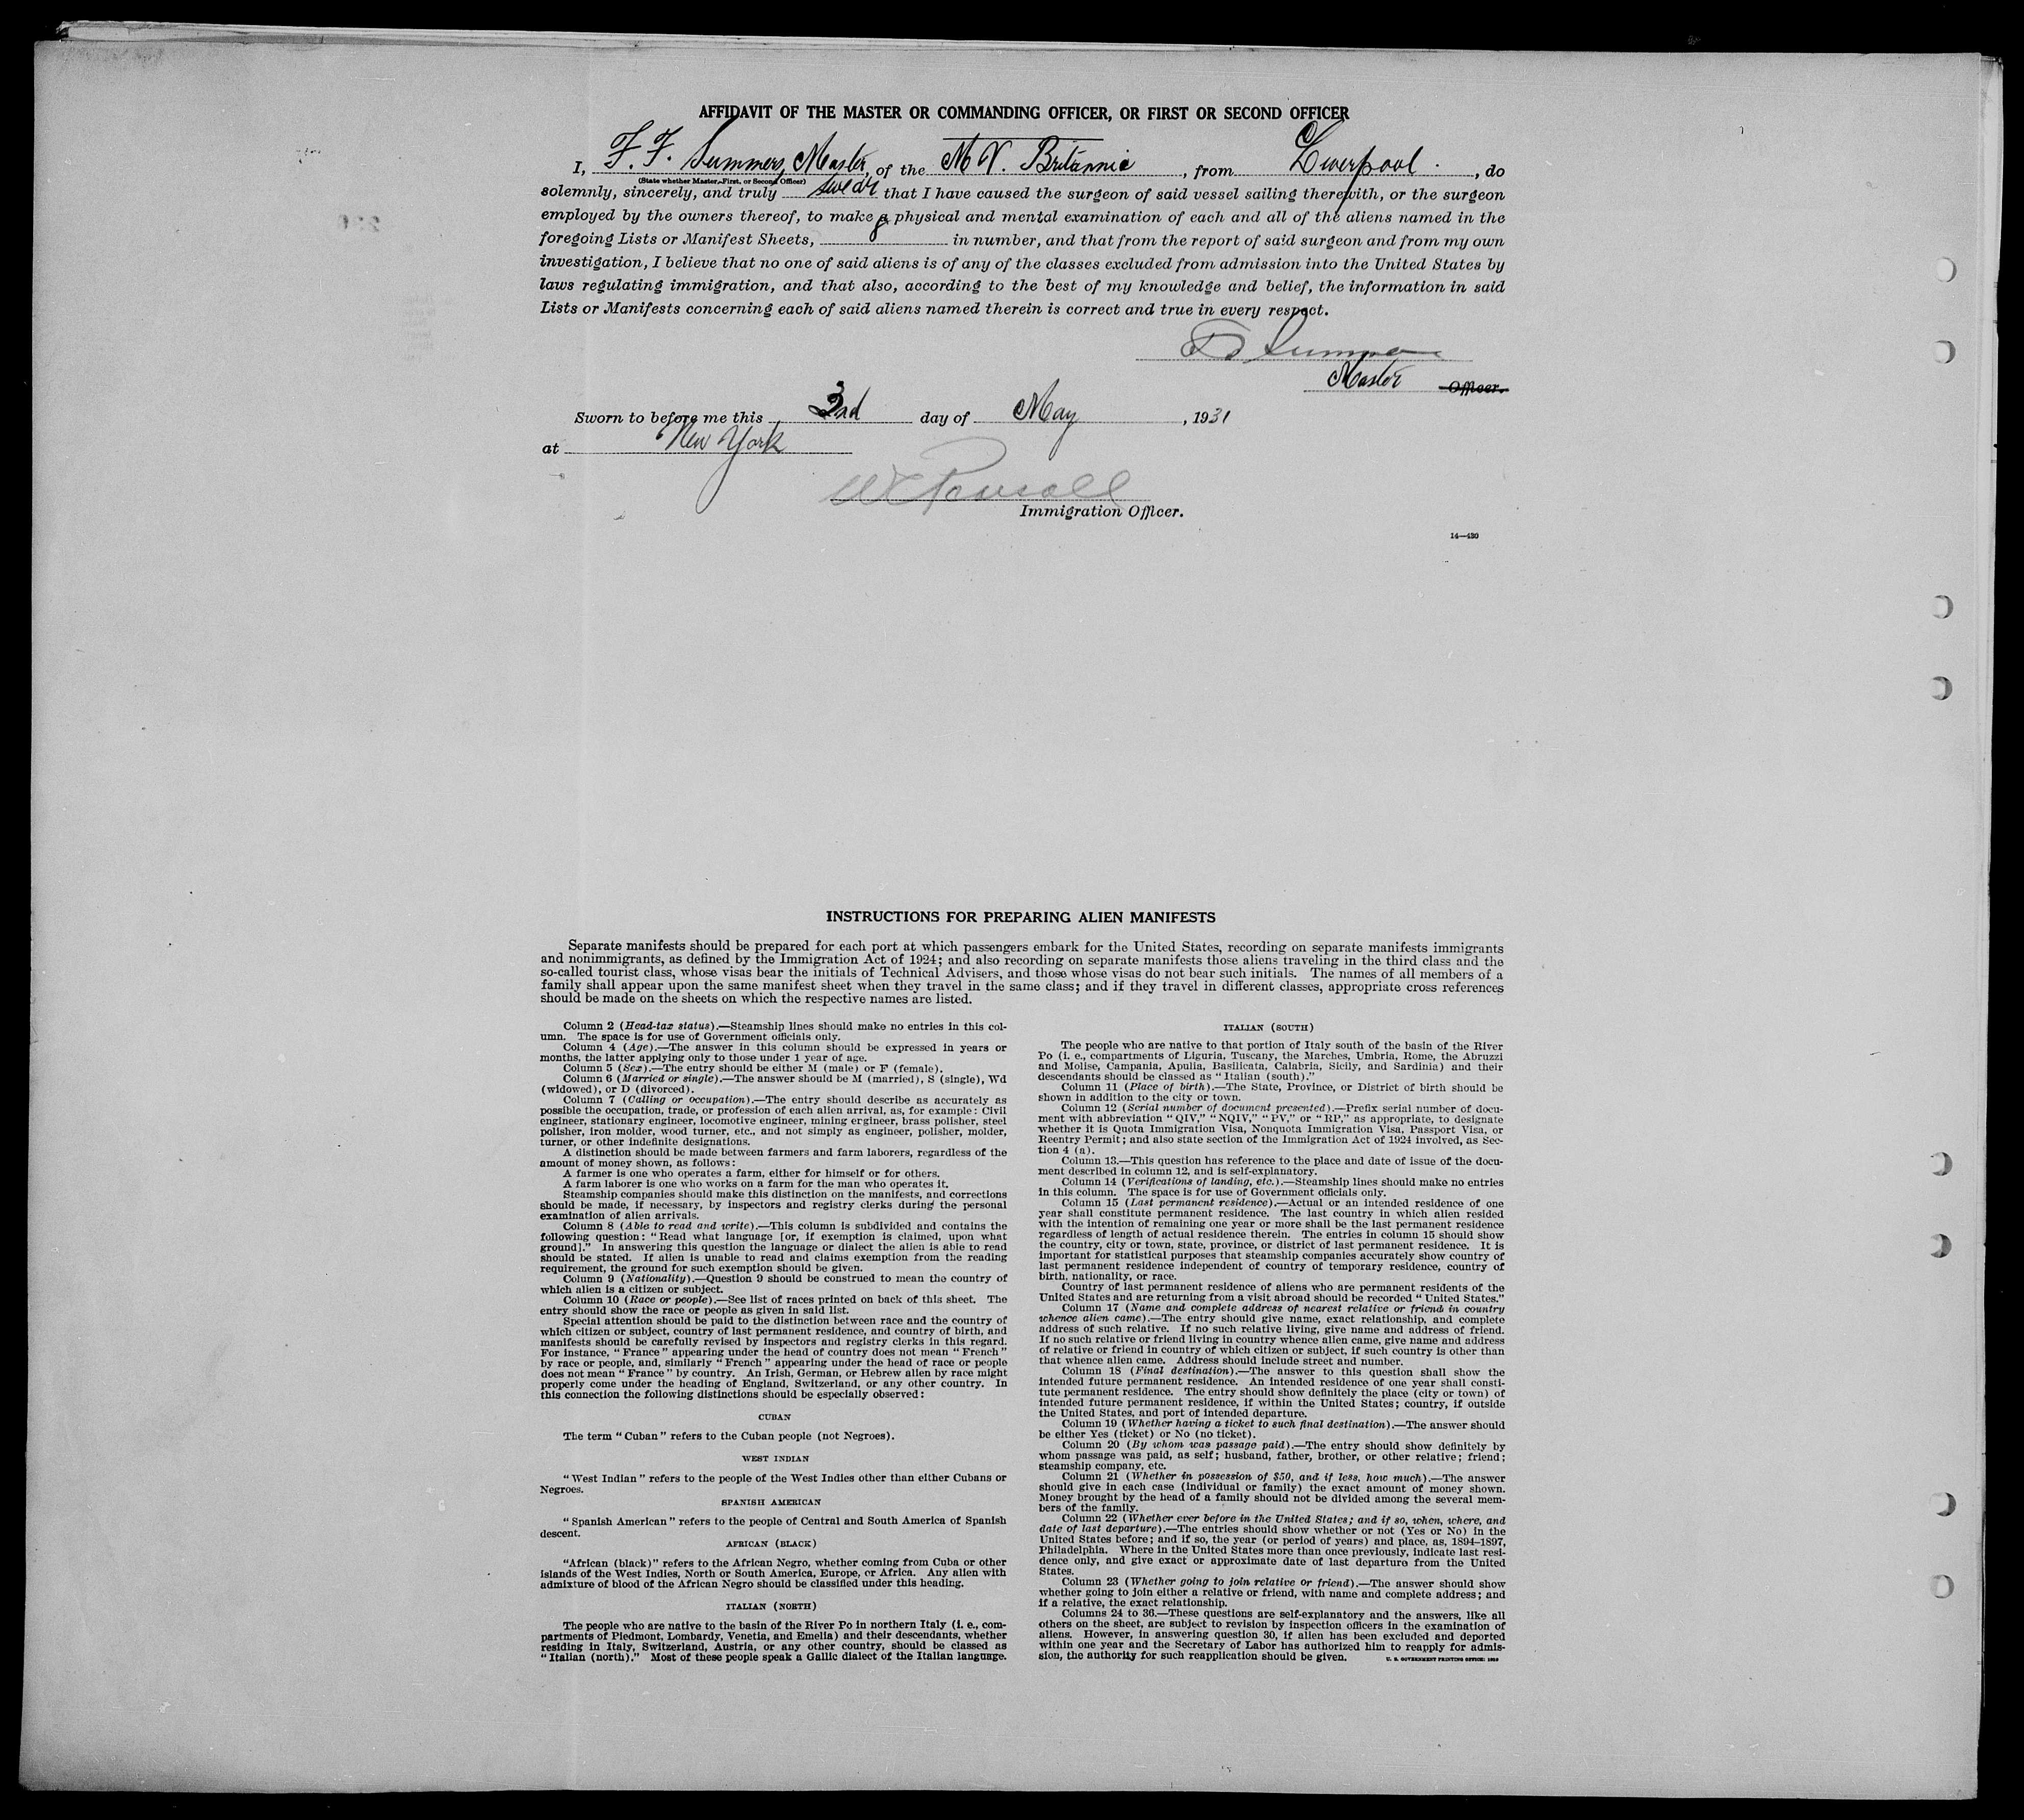 AFFIDAVIT OF THE MASTER OR COMMANDING OFFICER, OR FIRST OR SECOND OFFICER
I, F. F. Summers, Master, of the M V. Britannic, from Liverpool., do
(State whether Master, First, or Second Officer)
solemnly, sincerely, and truly swear that I have caused the surgeon of said vessel sailing therewith, or the surgeon
employed by the owners thereof, to make a physical and mental examination of each and all of the aliens named in the
foregoing Lists or Manifest Sheets, 8 in number, and that from the report of said surgeon and from my own
investigation, I believe that no one of said aliens is of any of the classes excluded from admission into the United States by
laws regulating immigration, and that also, according to the best of my knowledge and belief, the information in said
Lists or Manifests concerning each of said aliens named therein is correct and true in every respect.
Master Officer.
Sworn to before me this 3rd day of May, 1931
at New York
Immigration Officer.
14—430
INSTRUCTIONS FOR PREPARING ALIEN MANIFESTS
Separate manifests should be prepared for each port at which passengers embark for the United States, recording on separate manifests immigrants
and nonimmigrants, as defined by the Immigration Act of 1924; and also recording on separate manifests those aliens traveling in the third class and the
so-called tourist class, whose visas bear the initials of Technical Advisers, and those whose visas do not bear such initials. The names of all members of a
family shall appear upon the same manifest sheet when they travel in the same class; and if they travel in different classes, appropriate cross references
should be made on the sheets on which the respective names are listed.
Column 2 (Head-tax status).—Steamship lines should make no entries in this col-
umn. The space is for use of Government officials only.
Column 4 (Age).—The answer in this column should be expressed in years or
months, the latter applying only to those under 1 year of age.
Column 5 (Sex).—The entry should be either M (male) or F (female).
Column 6 (Married or single).—The answer should be M (married), S (single), Wd
(widowed), or D (divorced).
Column 7 (Calling or occupation).—The entry should describe as accurately as
possible the occupation, trade, or profession of each alien arrival, as, for example: Civil
engineer, stationary engineer, locomotive engineer, mining engineer, brass polisher, steel
polisher, iron molder, wood turner, etc., and not simply as engineer, polisher, molder,
turner, or other indefinite designations.
A distinction should be made between farmers and farm laborers, regardless of the
amount of money shown, as follows:
A farmer is one who operates a farm, either for himself or for others.
A farm laborer is one who works on a farm for the man who operates it.
Steamship companies should make this distinction on the manifests, and corrections
should be made, if necessary, by inspectors and registry clerks during the personal
examination of alien arrivals.
Column 8 (Able to read and write).—This column is subdivided and contains the
following question: "Read what language [or, if exemption is claimed, upon what
ground]." In answering this question the language or dialect the alien is able to read
should be stated. If alien is unable to read and claims exemption from the reading
requirement, the ground for such exemption should be given.
Column 9 (Nationality).—Question 9 should be construed to mean the country of
which alien is a citizen or subject.
Column 10 (Race or people).—See list of races printed on back of this sheet. The
entry should show the race or people as given in said list.
Special attention should be paid to the distinction between race and the country of
which citizen or subject, country of last permanent residence, and country of birth, and
manifests should be carefully revised by inspectors and registry clerks in this regard.
For instance, "France" appearing under the head of country does not mean "French"
by race or people, and, similarly "French" appearing under the head of race or people
does not mean "France" by country. An Irish, German, or Hebrew alien by race might
properly come under the heading of England, Switzerland, or any other country. In
this connection the following distinctions should be especially observed:
CUBAN
The term "Cuban" refers to the Cuban people (not Negroes).
WEST INDIAN
"West Indian" refers to the people of the West Indies other than either Cubans or
Negroes.
SPANISH AMERICAN
"Spanish American" refers to the people of Central and South America of Spanish
descent.
AFRICAN (BLACK)
"African (black)" refers to the African Negro, whether coming from Cuba or other
islands of the West Indies, North or South America, Europe, or Africa. Any alien with
admixture of blood of the African Negro should be classified under this heading.
ITALIAN (NORTH)
The people who are native to the basin of the River Po in northern Italy (i. e., com-
partments of Piedmont, Lombardy, Venetia, and Emelia) and their descendants, whether
residing in Italy, Switzerland, Austria, or any other country, should be classed as
"Italian (north)." Most of these people speak a Gallic dialect of the Italian language.
ITALIAN (SOUTH)
The people who are native to that portion of Italy south of the basin of the River
Po (i. e., compartments of Liguria, Tuscany, the Marches, Umbria, Rome, the Abruzzi
and Molise, Campania, Apulia, Basilicata, Calabria, Sicily, and Sardinia) and their
descendants should be classed as "Italian (south)."
Column 11 (Place of birth).—The State, Province, or District of birth should be
shown in addition to the city or town.
Column 12 (Serial number of document presented).—Prefix serial number of docu-
ment with abbreviation "QIV," "NQIV," "PV," or "RP," as appropriate, to designate
whether it is Quota Immigration Visa, Nonquota Immigration Visa, Passport Visa, or
Reentry Permit; and also state section of the Immigration Act of 1924 involved, as Sec-
tion 4 (a).
Column 13.—This question has reference to the place and date of issue of the docu-
ment described in column 12, and is self-explanatory.
Column 14 (Verifications of landing, etc.).—Steamship lines should make no entries
in this column. The space is for use of Government officials only.
Column 15 (Last permanent residence).—Actual or an intended residence of one
year shall constitute permanent residence. The last country in which alien resided
with the intention of remaining one year or more shall be the last permanent residence
regardless of length of actual residence therein. The entries in column 15 should show
the country, city or town, state, province, or district of last permanent residence. It is
important for statistical purposes that steamship companies accurately show country of
last permanent residence independent of country of temporary residence, country of
birth, nationality, or race.
Country of last permanent residence of aliens who are permanent residents of the
United States and are returning from a visit abroad should be recorded "United States."
Column 17 (Name and complete address of nearest relative or friend in country
whence alien came).—The entry should give name, exact relationship, and complete
address of such relative. If no such relative living, give name and address of friend.
If no such relative or friend living in country whence alien came, give name and address
of relative or friend in country of which citizen or subject, if such country is other than
that whence alien came. Address should include street and number.
Column 18 (Final destination).—The answer to this question shall show the
intended future permanent residence. An intended residence of one year shall consti-
tute permanent residence. The entry should show definitely the place (city or town) of
intended future permanent residence, if within the United States; country, if outside
the United States, and port of intended departure.
Column 19 (Whether having a ticket to such final destination).—The answer should
be either Yes (ticket) or No (no ticket).
Column 20 (By whom was passage paid).—The entry should show definitely by
whom passage was paid, as self; husband, father, brother, or other relative; friend;
steamship company, etc.
Column 21 (Whether in possession of $50, and if less, how much).—The answer
should give in each case (individual or family) the exact amount of money shown.
Money brought by the head of a family should not be divided among the several mem-
bers of the family.
Column 22 (Whether ever before in the United States; and if so, when, where, and
date of last departure).—The entries should show whether or not (Yes or No) in the
United States before; and if so, the year (or period of years) and place, as, 1894–1897,
Philadelphia. Where in the United States more than once previously, indicate last resi-
dence only, and give exact or approximate date of last departure from the United
States.
Column 23 (Whether going to join relative or friend).—The answer should show
whether going to join either a relative or friend, with name and complete address; and
if a relative, the exact relationship.
Columns 24 to 36.—These questions are self-explanatory and the answers, like all
others on the sheet, are subject to revision by inspection officers in the examination of
aliens. However, in answering question 30, if alien has been excluded and deported
within one year and the Secretary of Labor has authorized him to reapply for admis-
sion, the authority for such reapplication should be given.
U. S. GOVERNMENT PRINTING OFFICE: